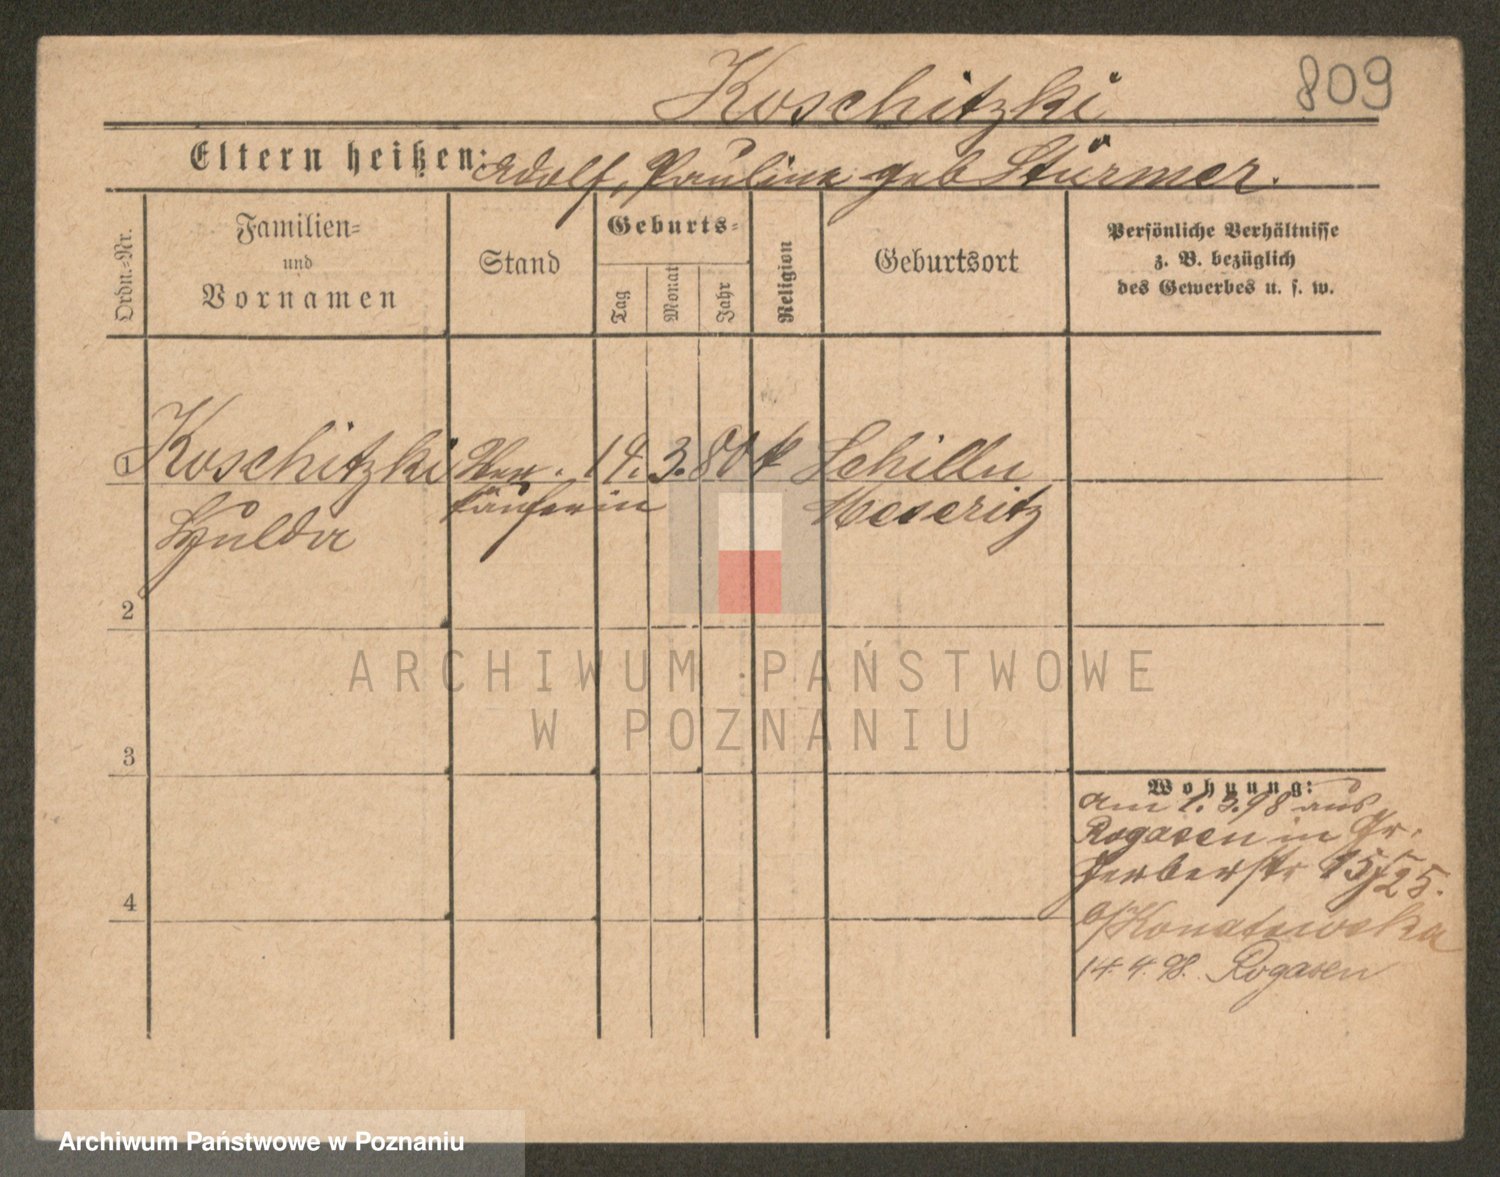 809
Koschitzki
Eltern heißen: Adolf, Pauline geb Stürmer.
Ordn.-Nr.
Familien-
und
Vornamen
Stand
Geburts-
Tag
Monat
Jahr
Religion
Geburtsort
Persönliche Verhältnisse
z. B. bezüglich
des Gewerbes u. s. w.
1 Koschitzki Ver- 14. 3. 80 k Schilln
Hulda käuferin Meseritz
2
3
4
Wohnung:
am 1.3.98 aus
Rogasen in Gr.
Gerberstr 15/25.
b/Konatowska
14.4.98. Rogasen
ARCHIWUM PAŃSTWOWE
W POZNANIU
Archiwum Państwowe w Poznaniu